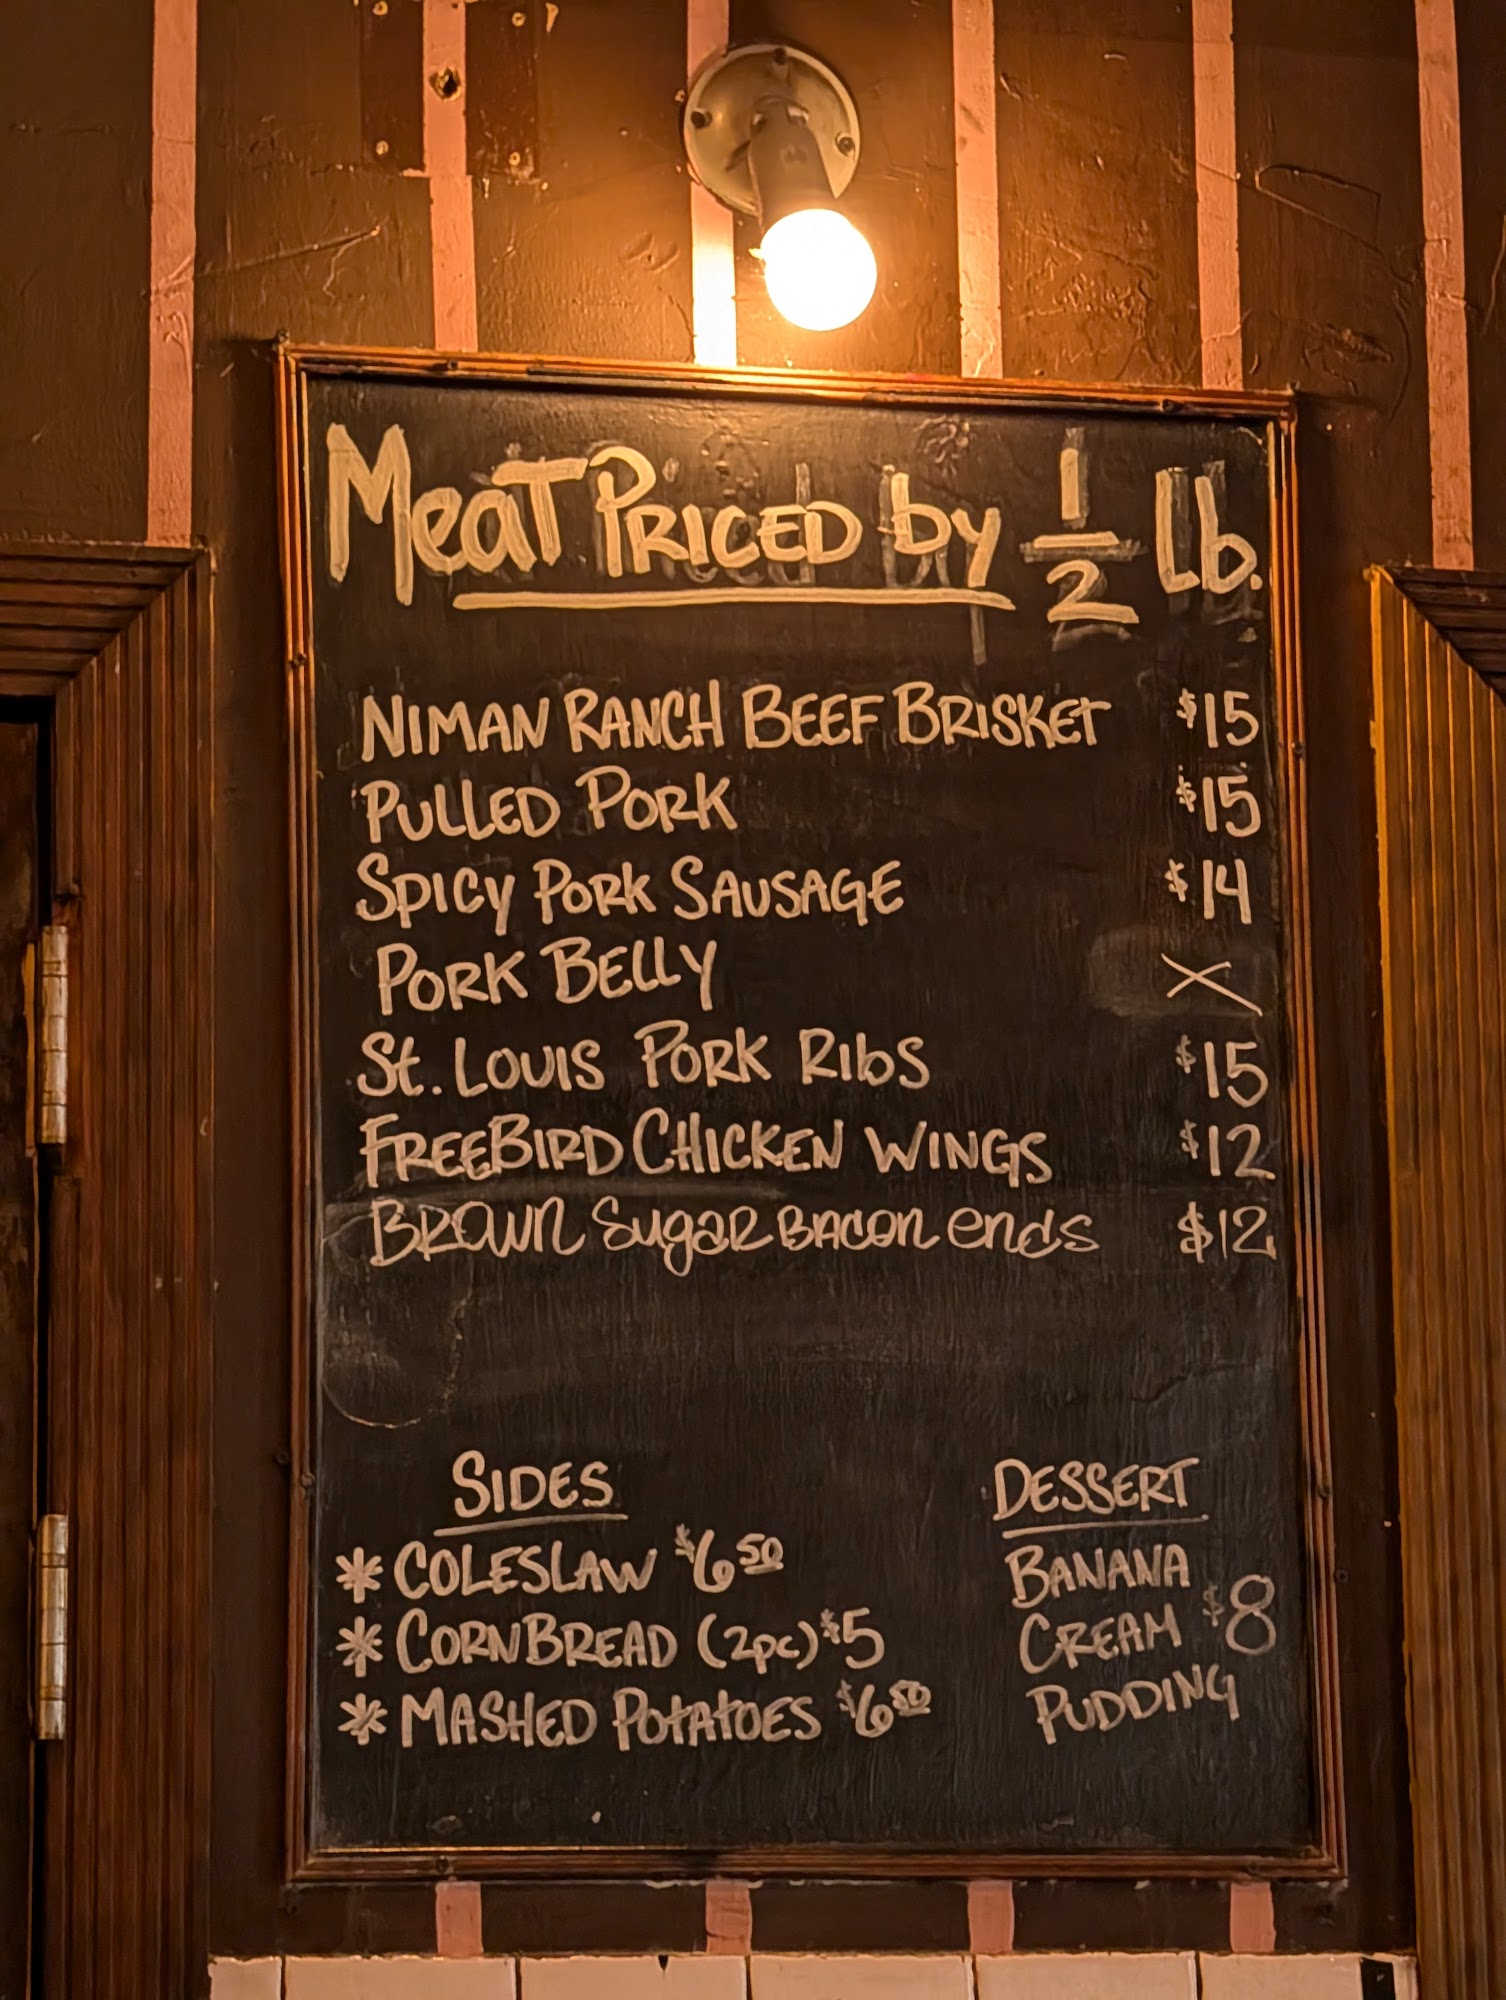 MeaT PRICED by 1/2 Lb.
NIMAN RANCH BEEF BRISKET $15
PULLED PORK $15
SPICY PORK SAUSAGE $14
PORK BELLY X
St. LOUIS PORK RIbS $15
FREEBIRD CHICKEN WINGS $12
BROWN SugaR BACON ends $12
SIDES
* COLESLAW $6 50
* CORNBREAD (2pc) $5
* MASHED POTATOES $6 50
DESSERT
BANANA
CREAM $8
PUDDING